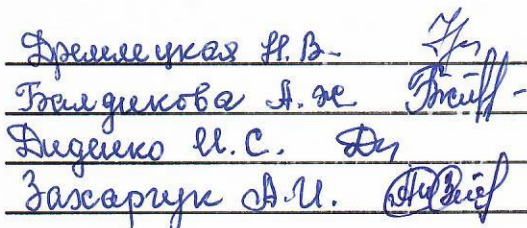 Дремлецкая Н.В.
Балдикова А.Ж
Диденко И.С.
Захарчук А.И.